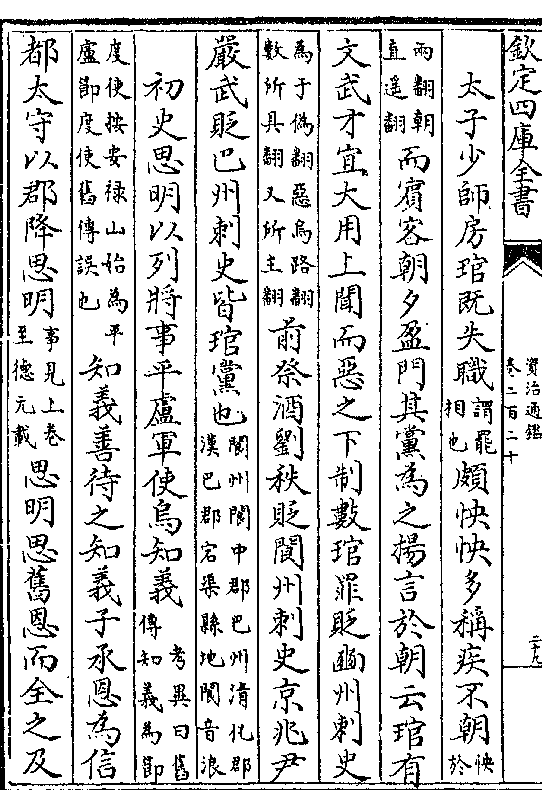 欽定四庫全書 資治通鑑 卷二百二十 二十九
太子少師房琯既失職謂罷相也頗怏怏多稱疾不朝怏於
兩翻朝直遥翻而賓客朝夕盈門其黨為之揚言於朝云琯有
文武才宜大用上聞而惡之下制數琯罪貶豳州刺史
為于偽翻惡烏路翻數所具翻又所主翻前祭酒劉秩貶閬州刺史京兆尹
嚴武貶巴州刺史皆琯黨也閬州閬中郡巴州清化郡漢巴郡宕渠縣地閬音浪
初史思明以列將事平盧軍使烏知義考異曰舊傳知義為節
度使按安禄山始為平盧節度使舊傳誤也知義善待之知義子承恩為信
都太守以郡降思明事見上卷至德元載思明思舊恩而全之及